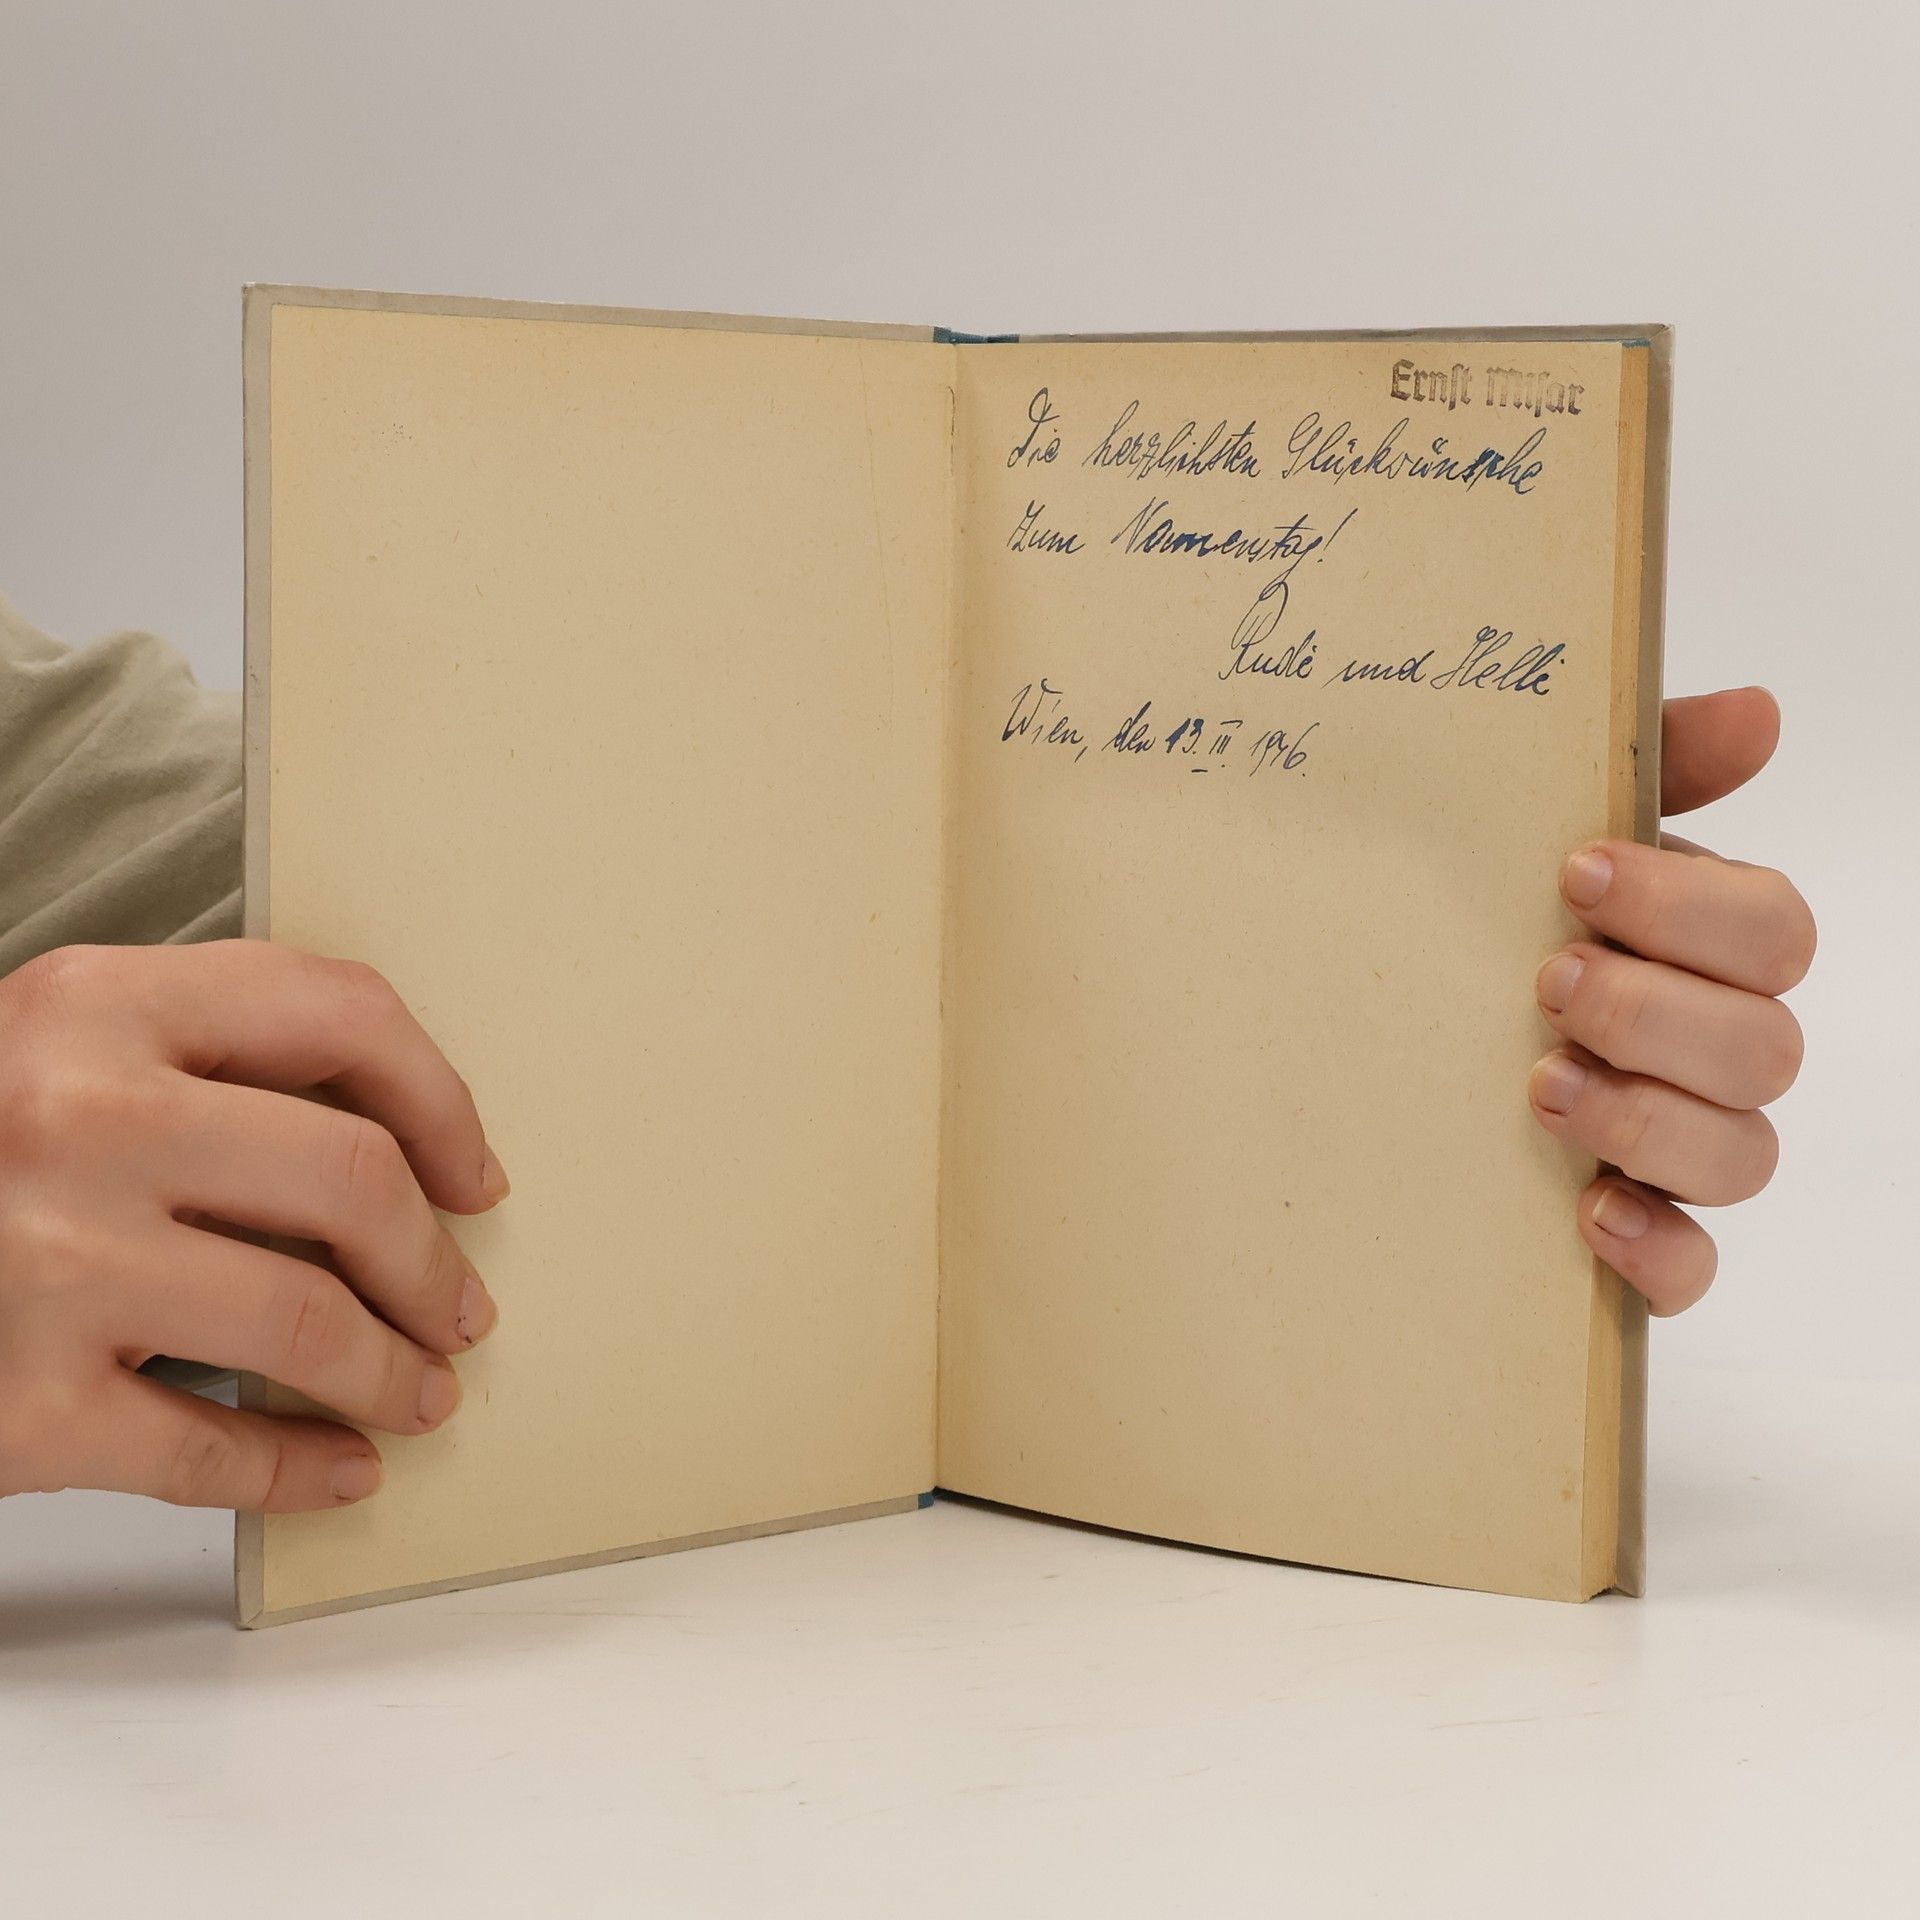 Ernst Misar
Die herzlichsten Glückwünsche
zum Namenstag!
Rudi und Helli
Wien, den 13. III. 1946.